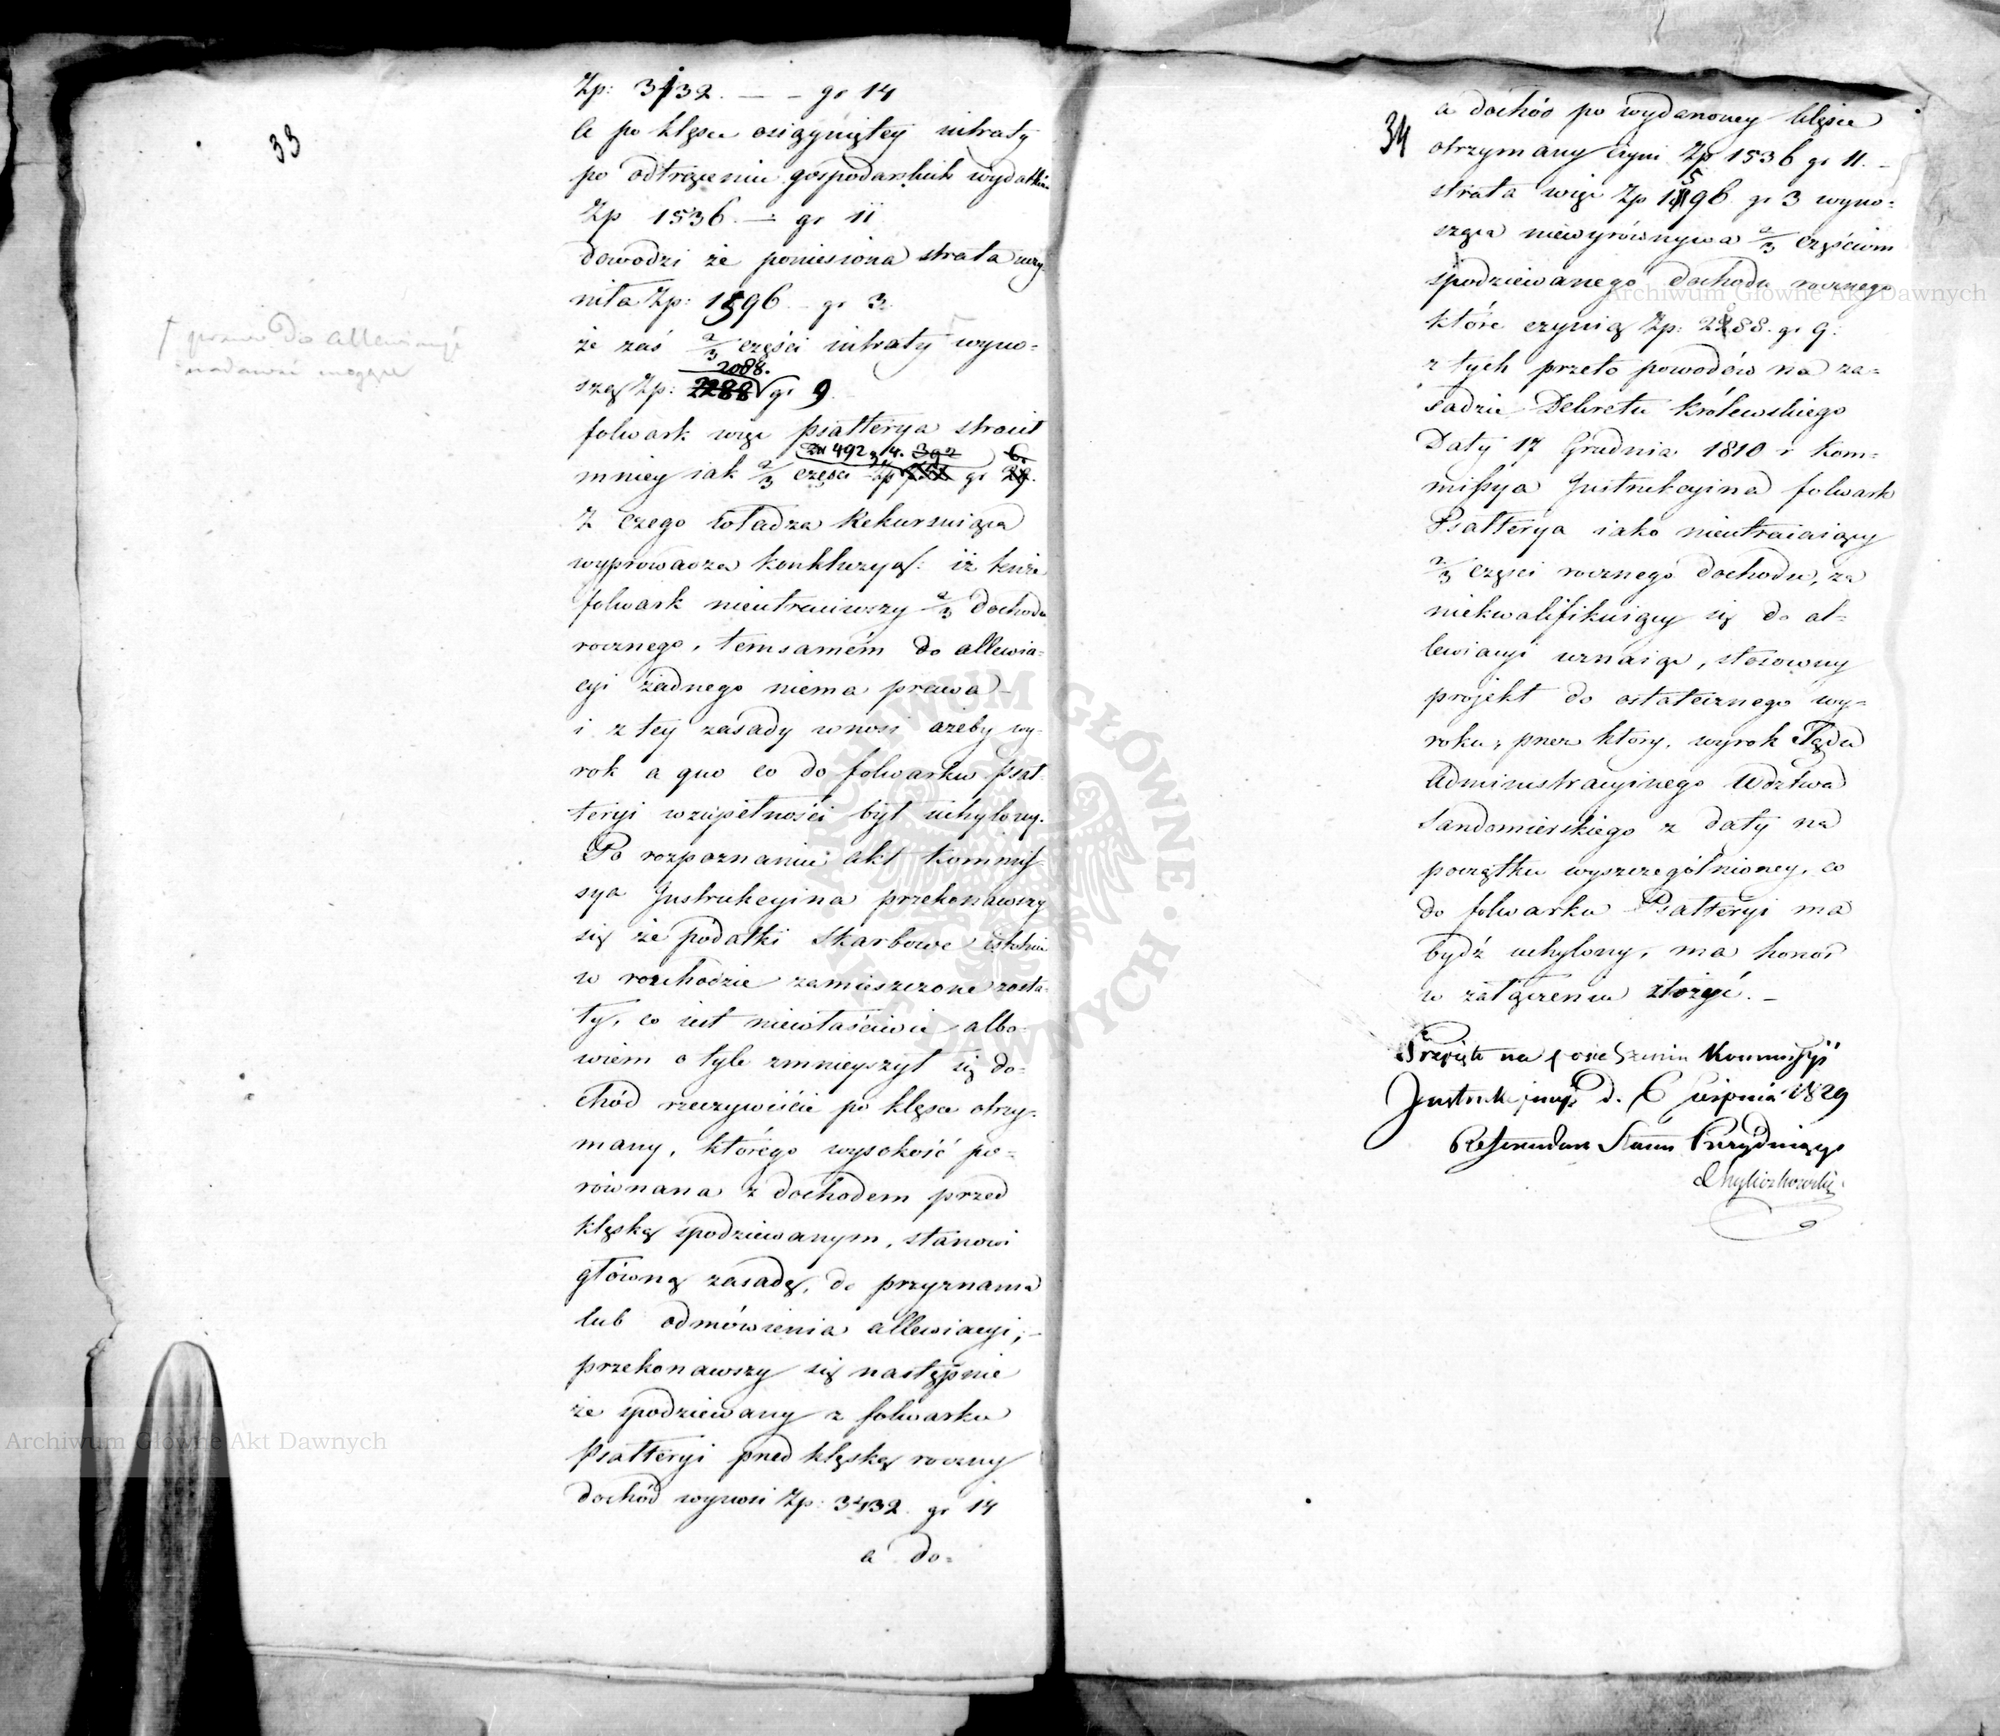 33
prawo do allewiacyi
nadawać mogące
Zp: 3132. — — gr 14
a po klęsce osiągniętey intraty
po odtrąceniu gospodarskich wydatków
Zp 1536. — gr 11
dowodzi że poniesiona strata uczy-
niła Zp: 1596 — gr 3.
że zaś 2/3 części intraty wyno-
2088.
szą Zp: 2288 gr 9
folwark więc Psałterya stracił
492 14. 392 6.
mniey iak 2/3 części Zp gr
Z czego władza Rekursuiąca
wyprowadza konkluzyą: iż
folwark nieutraciwszy 2/3 dochodu
rocznego, temsamém do allewia-
cyi żadnego niema prawa —
i z tey zasady wnosi ażeby wy-
rok a quo co do folwarku Psał-
teryi wzupełności był uchylony.
Po rozpoznaniu akt Kommis-
sya Instrukcyina przekonawszy
się że podatki Skarbowe
w rozchodzie zamieszczone zosta-
ły, co iest niewłaściwie albo-
wiem o tyle zmnieyszył się do-
chód rzeczywiście po klęsce otrzy-
many, którego wysokość po-
równana z dochodem przed
klęską spodziewanym, stanowi
główną zasadę, do przyznania
lub odmówienia allewiacyi; —
przekonawszy się następnie
że spodziewany z folwarku
Psałteryi przed klęską roczny
dochód wynosi Zp: 3132 gr 14
a do-
34
a dochód po wydaroney klęsce
otrzymany czyni Zp 1536 gr 11. —
5
strata więc Zp 1596 gr 3 wyno-
sząca niewyrównywa 2/3 częściom
spodziewanego dochodu rocznego
które czynią Zp: 2088. gr 9.
z tych przeto powodów na za-
sadzie Dekretu Królewskiego
Daty 17 Grudnia 1810 r Kom-
missya Instrukcyina folwark
Psałterya iako nieutracaiący
2/3 części rocznego dochodu, za
niekwalifikuiący się do al-
lewiacyi uznaiąc, stosowny
projekt do ostatecznego wy-
roku, przez który, wyrok Sądu
Administracyinego Wdztwa
Sandomierskiego z daty na
początku wyszczególnioney, co
do folwarku Psałteryi ma
bydź uchylony, ma honor
w załączeniu złożyć. —
Przyięto na posiedzeniu Kommissyi
Instrukcyiney d. 6 Sierpnia 1829
Referendarz Stanu Prezyduiący
Chyliczkowski
Archiwum Główne Akt Dawnych
Archiwum Główne Akt Dawnych
ARCHIWUM GŁÓWNE · AKT DAWNYCH ·